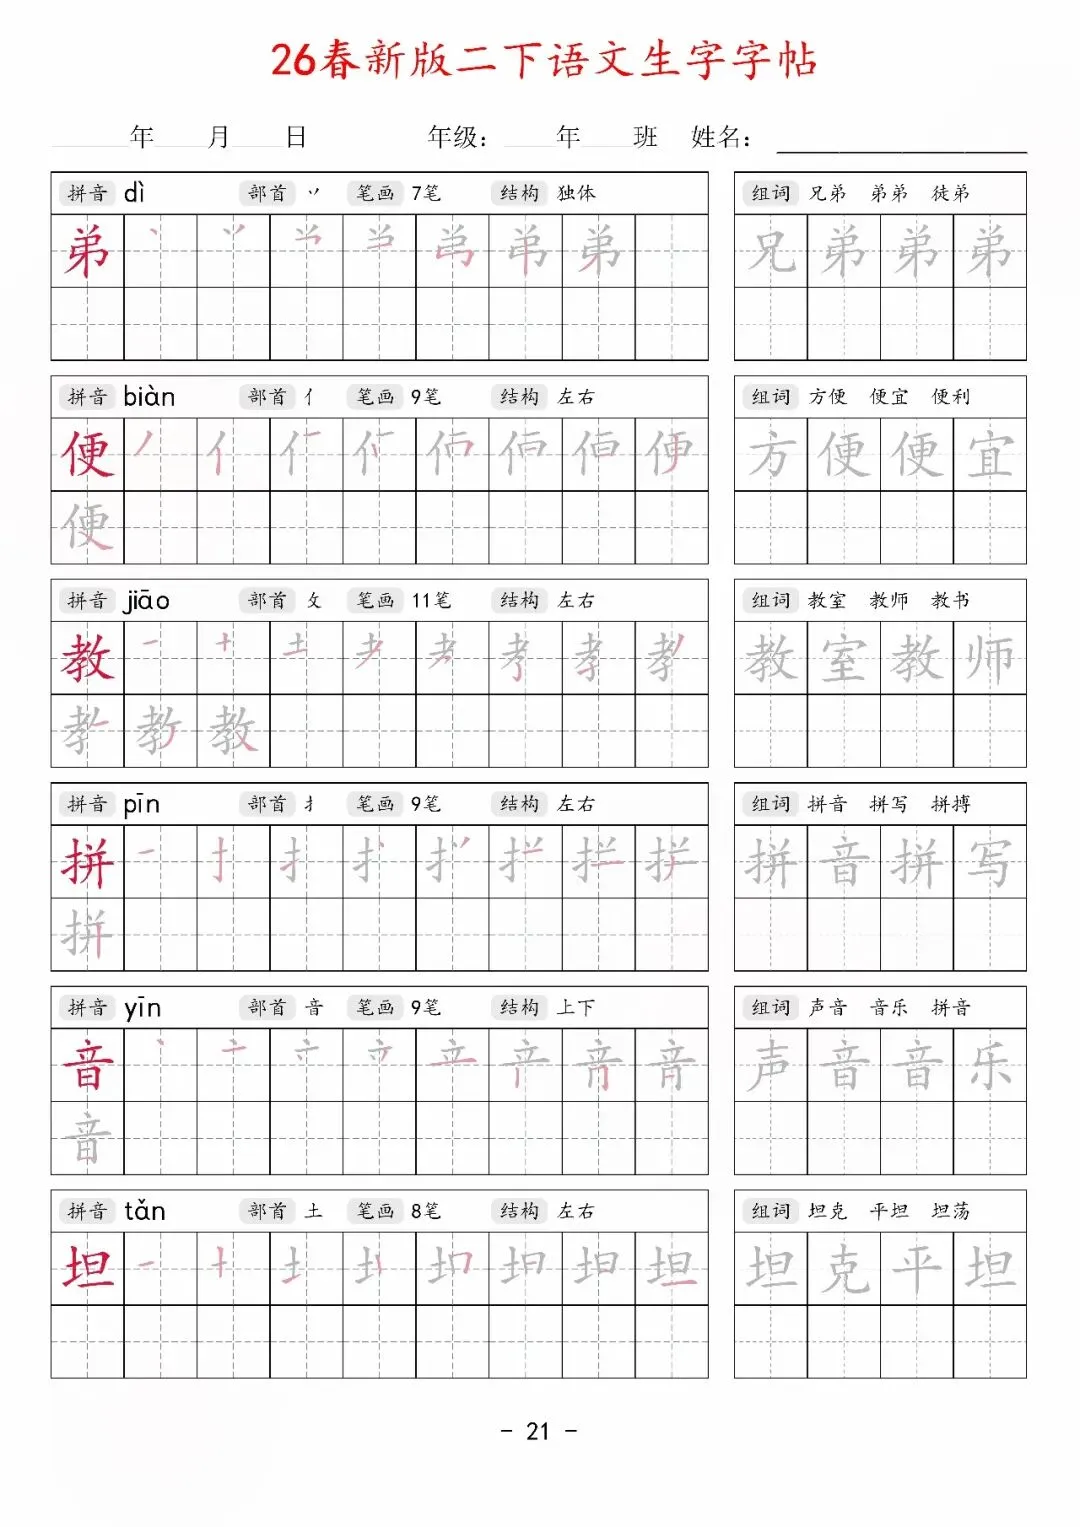 26春新版二下语文生字字帖
年 月 日 年级： 年 班 姓名：
拼音 dì 部首 丷 笔画 7笔 结构 独体 组词 兄弟 弟弟 徒弟
弟 弟 兄 弟 弟 弟
拼音 biàn 部首 亻 笔画 9笔 结构 左右 组词 方便 便宜 便利
便 方 便 便 宜
便
拼音 jiāo 部首 攵 笔画 11笔 结构 左右 组词 教室 教师 教书
教 教 室 教 师
教
拼音 pīn 部首 扌 笔画 9笔 结构 左右 组词 拼音 拼写 拼搏
拼 拼 音 拼 写
拼
拼音 yīn 部首 音 笔画 9笔 结构 上下 组词 声音 音乐 拼音
音 声 音 音 乐
音
拼音 tǎn 部首 土 笔画 8笔 结构 左右 组词 坦克 平坦 坦荡
坦 坦 坦 克 平 坦
- 21 -